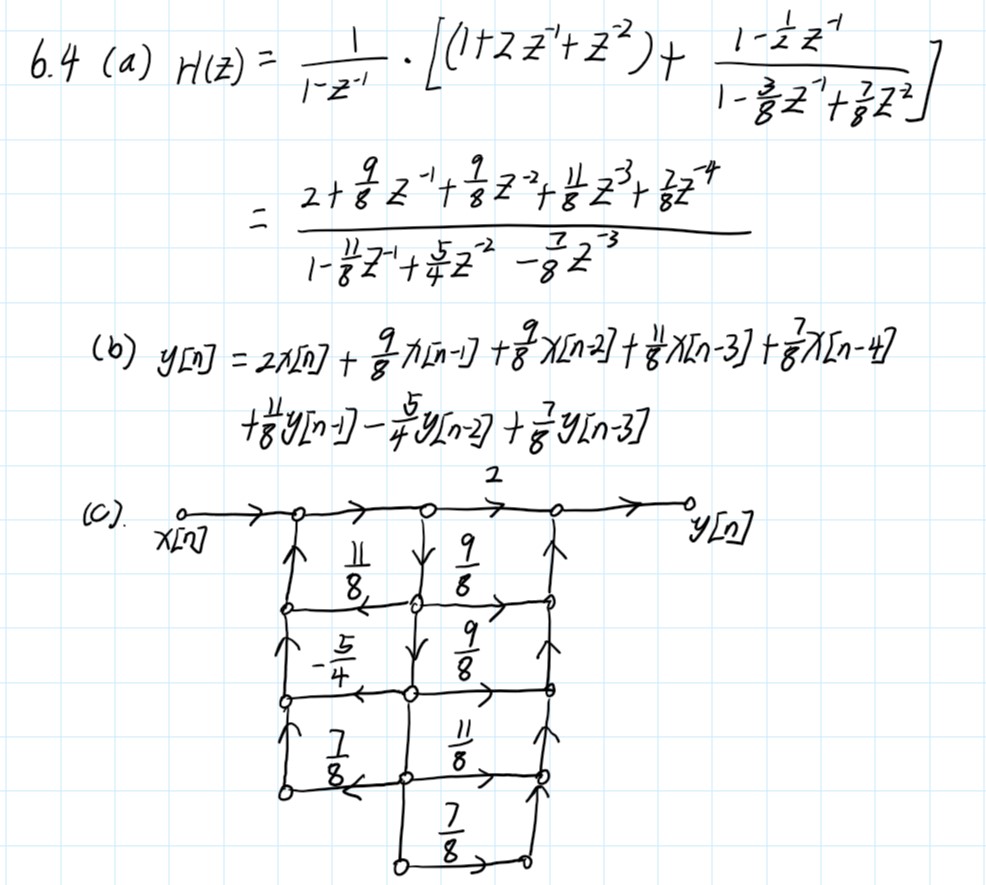 6.4 (a) H(z) = 1/(1-z⁻¹) · [(1+2z⁻¹+z⁻²)+ (1-½z⁻¹)/(1-⅜z⁻¹+⅞z⁻²)]
= (2+9/8 z⁻¹+9/8 z⁻²+11/8 z⁻³+7/8 z⁻⁴)/(1-11/8 z⁻¹+5/4 z⁻²-7/8 z⁻³)
(b) y[n] = 2x[n] + 9/8 x[n-1] + 9/8 x[n-2] + 11/8 x[n-3] + 7/8 x[n-4]
+11/8 y[n-1] - 5/4 y[n-2] + 7/8 y[n-3]
(c). x[n] 2 y[n]
11/8 9/8
-5/4 9/8
7/8 11/8
7/8